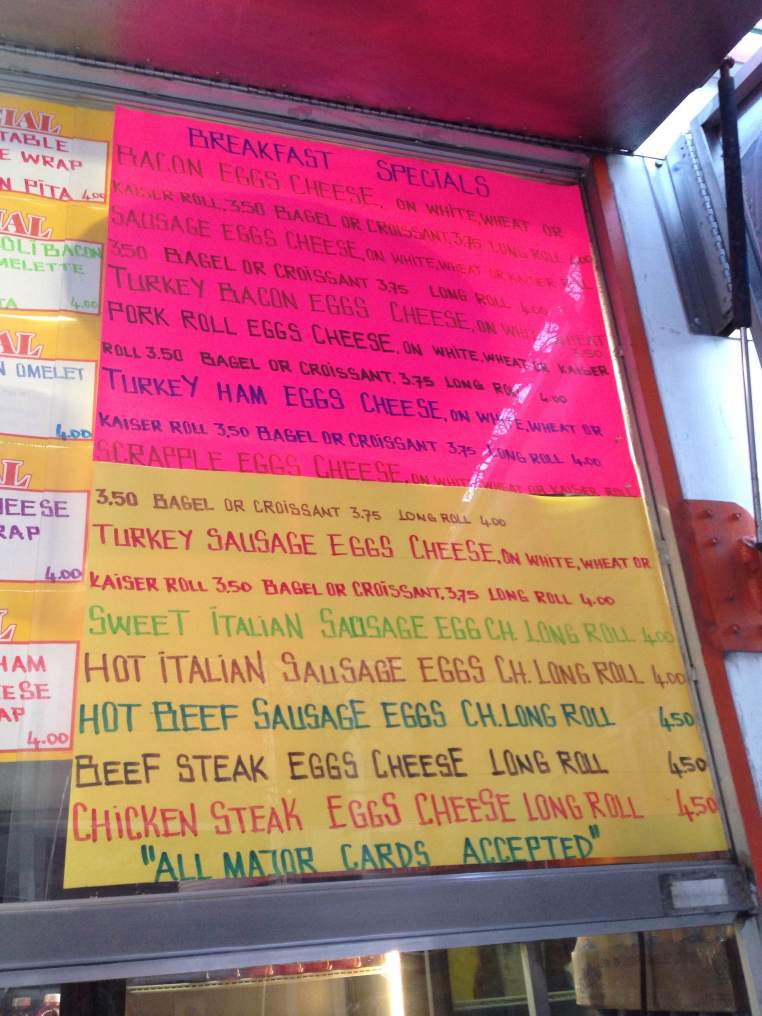 IAL
TABLE
E WRAP
N PiTA 4.00
IAL
OLI BACON
MELETTE
TA 4.00
AL
N OMELET
4.00
AL
HEESE
RAP
4.00
L
HAM
ESE
AP
4.00
BREAKFAST SPECIALS
BACON EGGS CHEESE, ON WHITE, WHEAT OR
KAISER ROLL, 3.50 BAGEL OR CROISSANT, 3.75 LONG ROLL 4.00
SAUSAGE EGGS CHEESE, ON WHITE, WHEAT OR KAISER ROLL
3.50 BAGEL OR CROISSANT 3.75 LONG ROLL 4.00
TURKEY BACON EGGS CHEESE, ON WHITE, WHEAT
3.50
PORK ROLL EGGS CHEESE, ON WHITE, WHEAT OR KAISER
ROLL 3.50 BAGEL OR CROISSANT, 3.75 LONG ROLL 4.00
TURKEY HAM EGGS CHEESE, ON WHITE, WHEAT OR
KAISER ROLL 3.50 BAGEL OR CROISSANT 3.75 LONG ROLL 4.00
SCRAPPLE EGGS CHEESE, ON WHITE, WHEAT OR KAISER ROLL
3.50 BAGEL OR CROISSANT 3.75 LONG ROLL 4.00
TURKEY SAUSAGE EGGS CHEESE, ON WHITE, WHEAT OR
KAISER ROLL 3.50 BAGEL OR CROISSANT, 3.75 LONG ROLL 4.00
SWEET ITALIAN SAUSAGE EGG CH. LONG ROLL 4.00
HOT ITALIAN SAUSAGE EGGS CH. LONG ROLL 4.00
HOT BEEF SAUSAGE EGGS CH. LONG ROLL 4.50
BEEF STEAK EGGS CHEESE LONG ROLL 4.50
CHICKEN STEAK EGGS CHEESE LONG ROLL 4.50
"ALL MAJOR CARDS ACCEPTED"